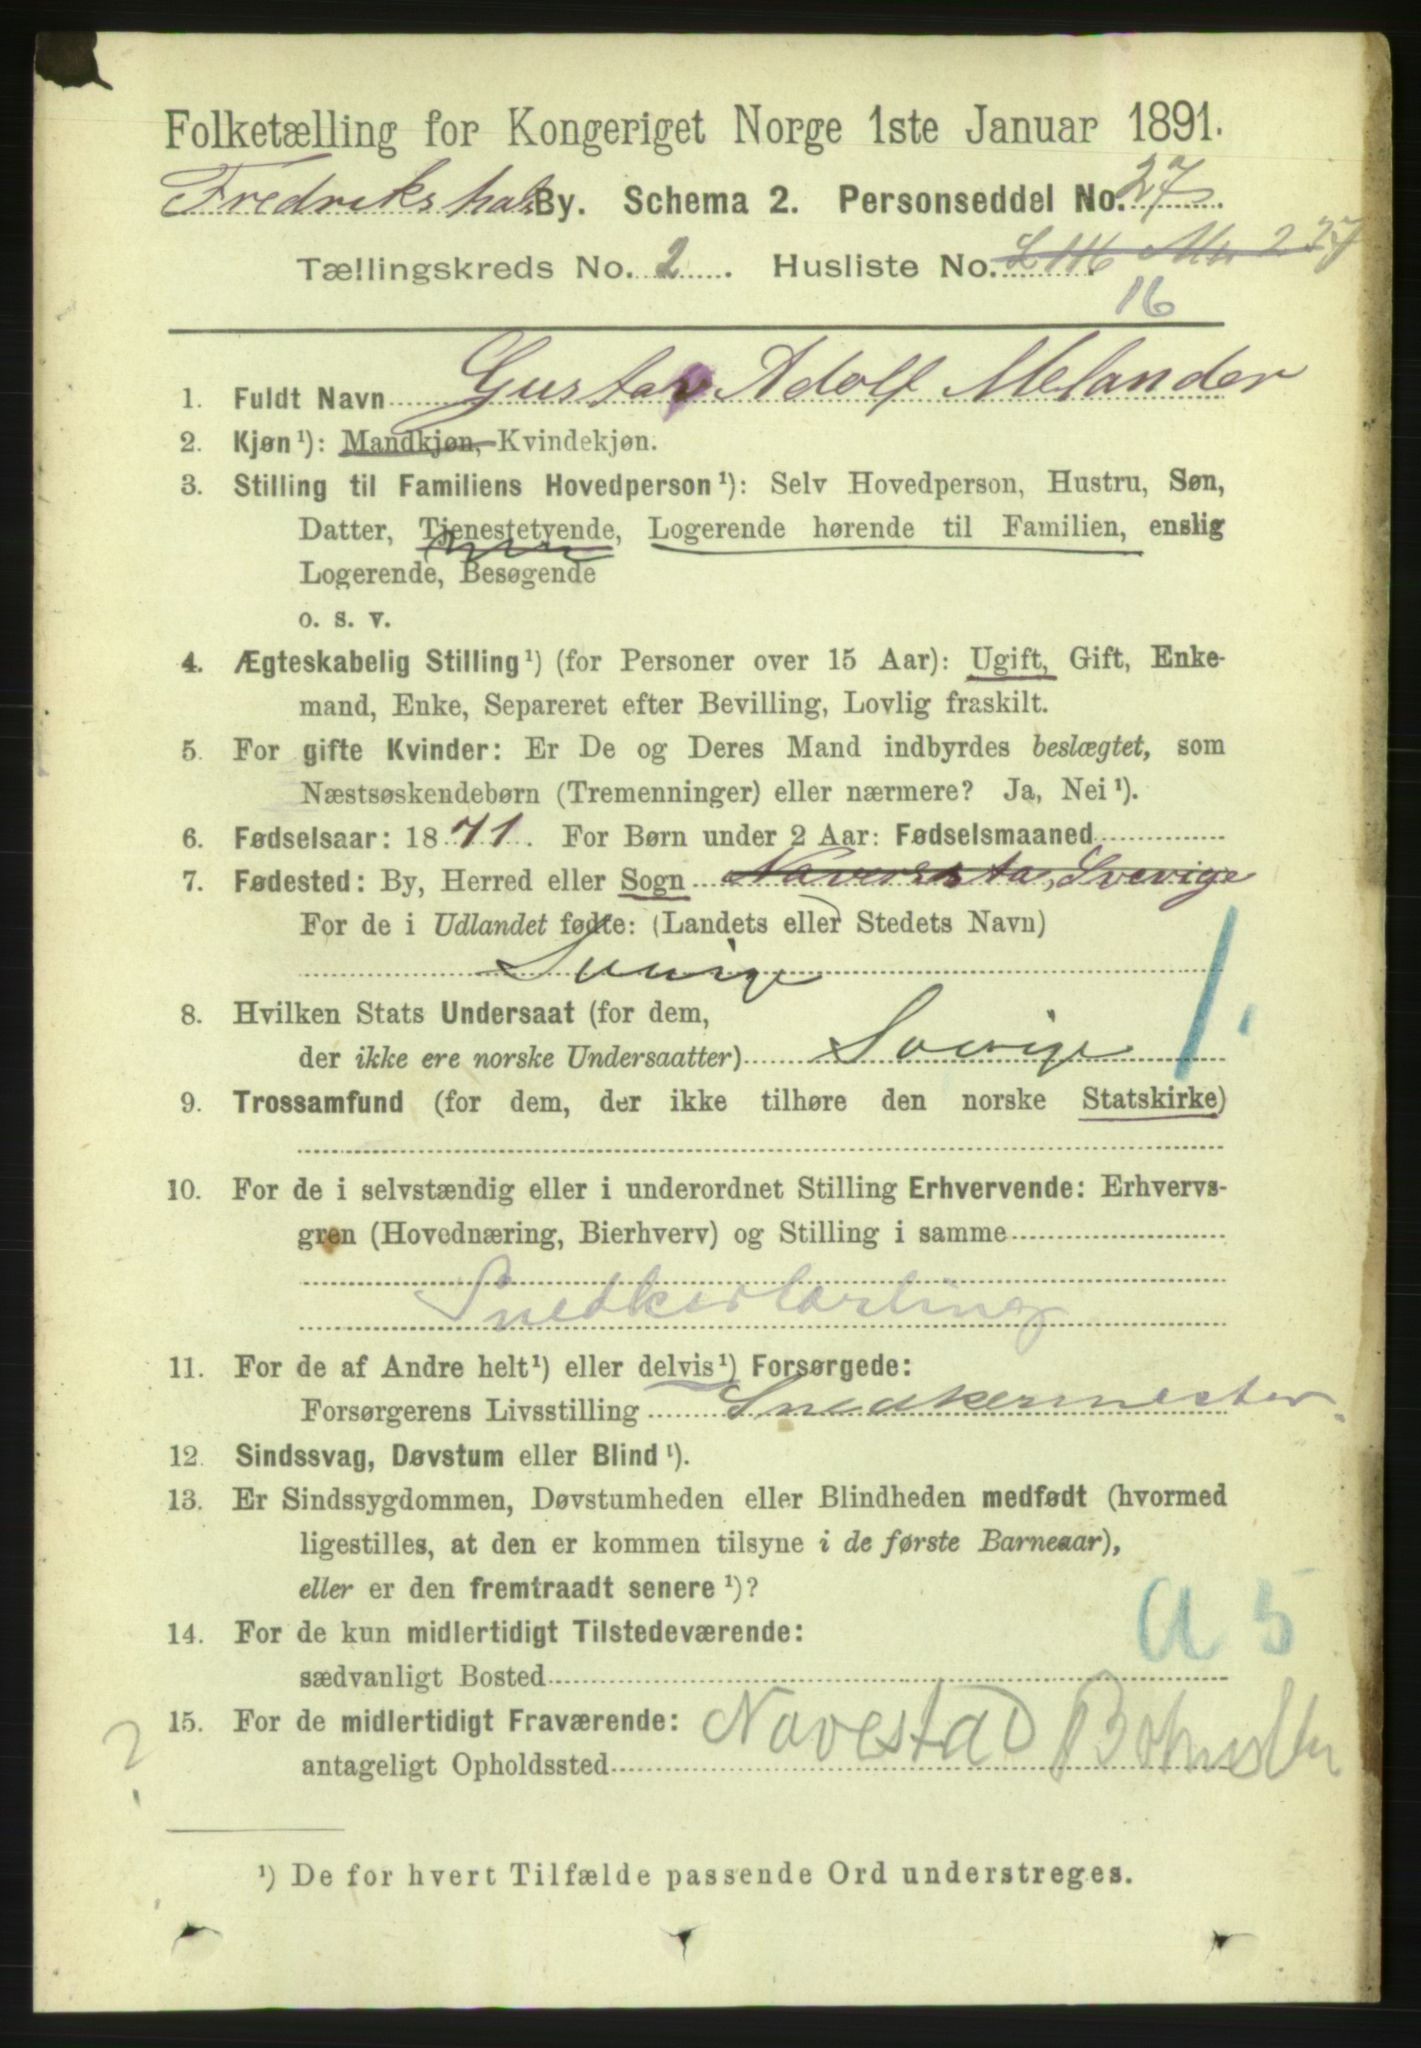 Folketælling for Kongeriget Norge 1ste Januar 1891.
Fredrikshald By. Schema 2. Personseddel No. 27
Tællingskreds No. 2. Husliste No.
16
1. Fuldt Navn Gustav Adolf Melander
2. Kjøn ¹): Mandkjøn, Kvindekjøn.
3. Stilling til Familiens Hovedperson ¹): Selv Hovedperson, Hustru, Søn,
Datter, Tjenestetyende, Logerende hørende til Familien, enslig
Logerende, Besøgende
o. s. v.
4. Ægteskabelig Stilling ¹) (for Personer over 15 Aar): Ugift, Gift, Enke-
mand, Enke, Separeret efter Bevilling, Lovlig fraskilt.
5. For gifte Kvinder: Er De og Deres Mand indbyrdes beslægtet, som
Næstsøskendebørn (Tremenninger) eller nærmere? Ja, Nei ¹).
6. Fødselsaar: 1871. For Børn under 2 Aar: Fødselsmaaned
7. Fødested: By, Herred eller Sogn Naversta, Sverige
For de i Udlandet fødte: (Landets eller Stedets Navn)
Sverige
8. Hvilken Stats Undersaat (for dem,
der ikke ere norske Undersaatter) Sverige
9. Trossamfund (for dem, der ikke tilhøre den norske Statskirke)
10. For de i selvstændig eller i underordnet Stilling Erhvervende: Erhvervs-
gren (Hovednæring, Bierhverv) og Stilling i samme
Snedkerlærling
11. For de af Andre helt ¹) eller delvis ¹) Forsørgede:
Forsørgerens Livsstilling Snedkermester.
12. Sindssvag, Døvstum eller Blind ¹).
13. Er Sindssygdommen, Døvstumheden eller Blindheden medfødt (hvormed
ligestilles, at den er kommen tilsyne i de første Barneaar),
eller er den fremtraadt senere ¹)?
a 5
14. For de kun midlertidigt Tilstedeværende:
sædvanligt Bosted
? 15. For de midlertidigt Fraværende: Navestad
antageligt Opholdssted
¹) De for hvert Tilfælde passende Ord understreges.